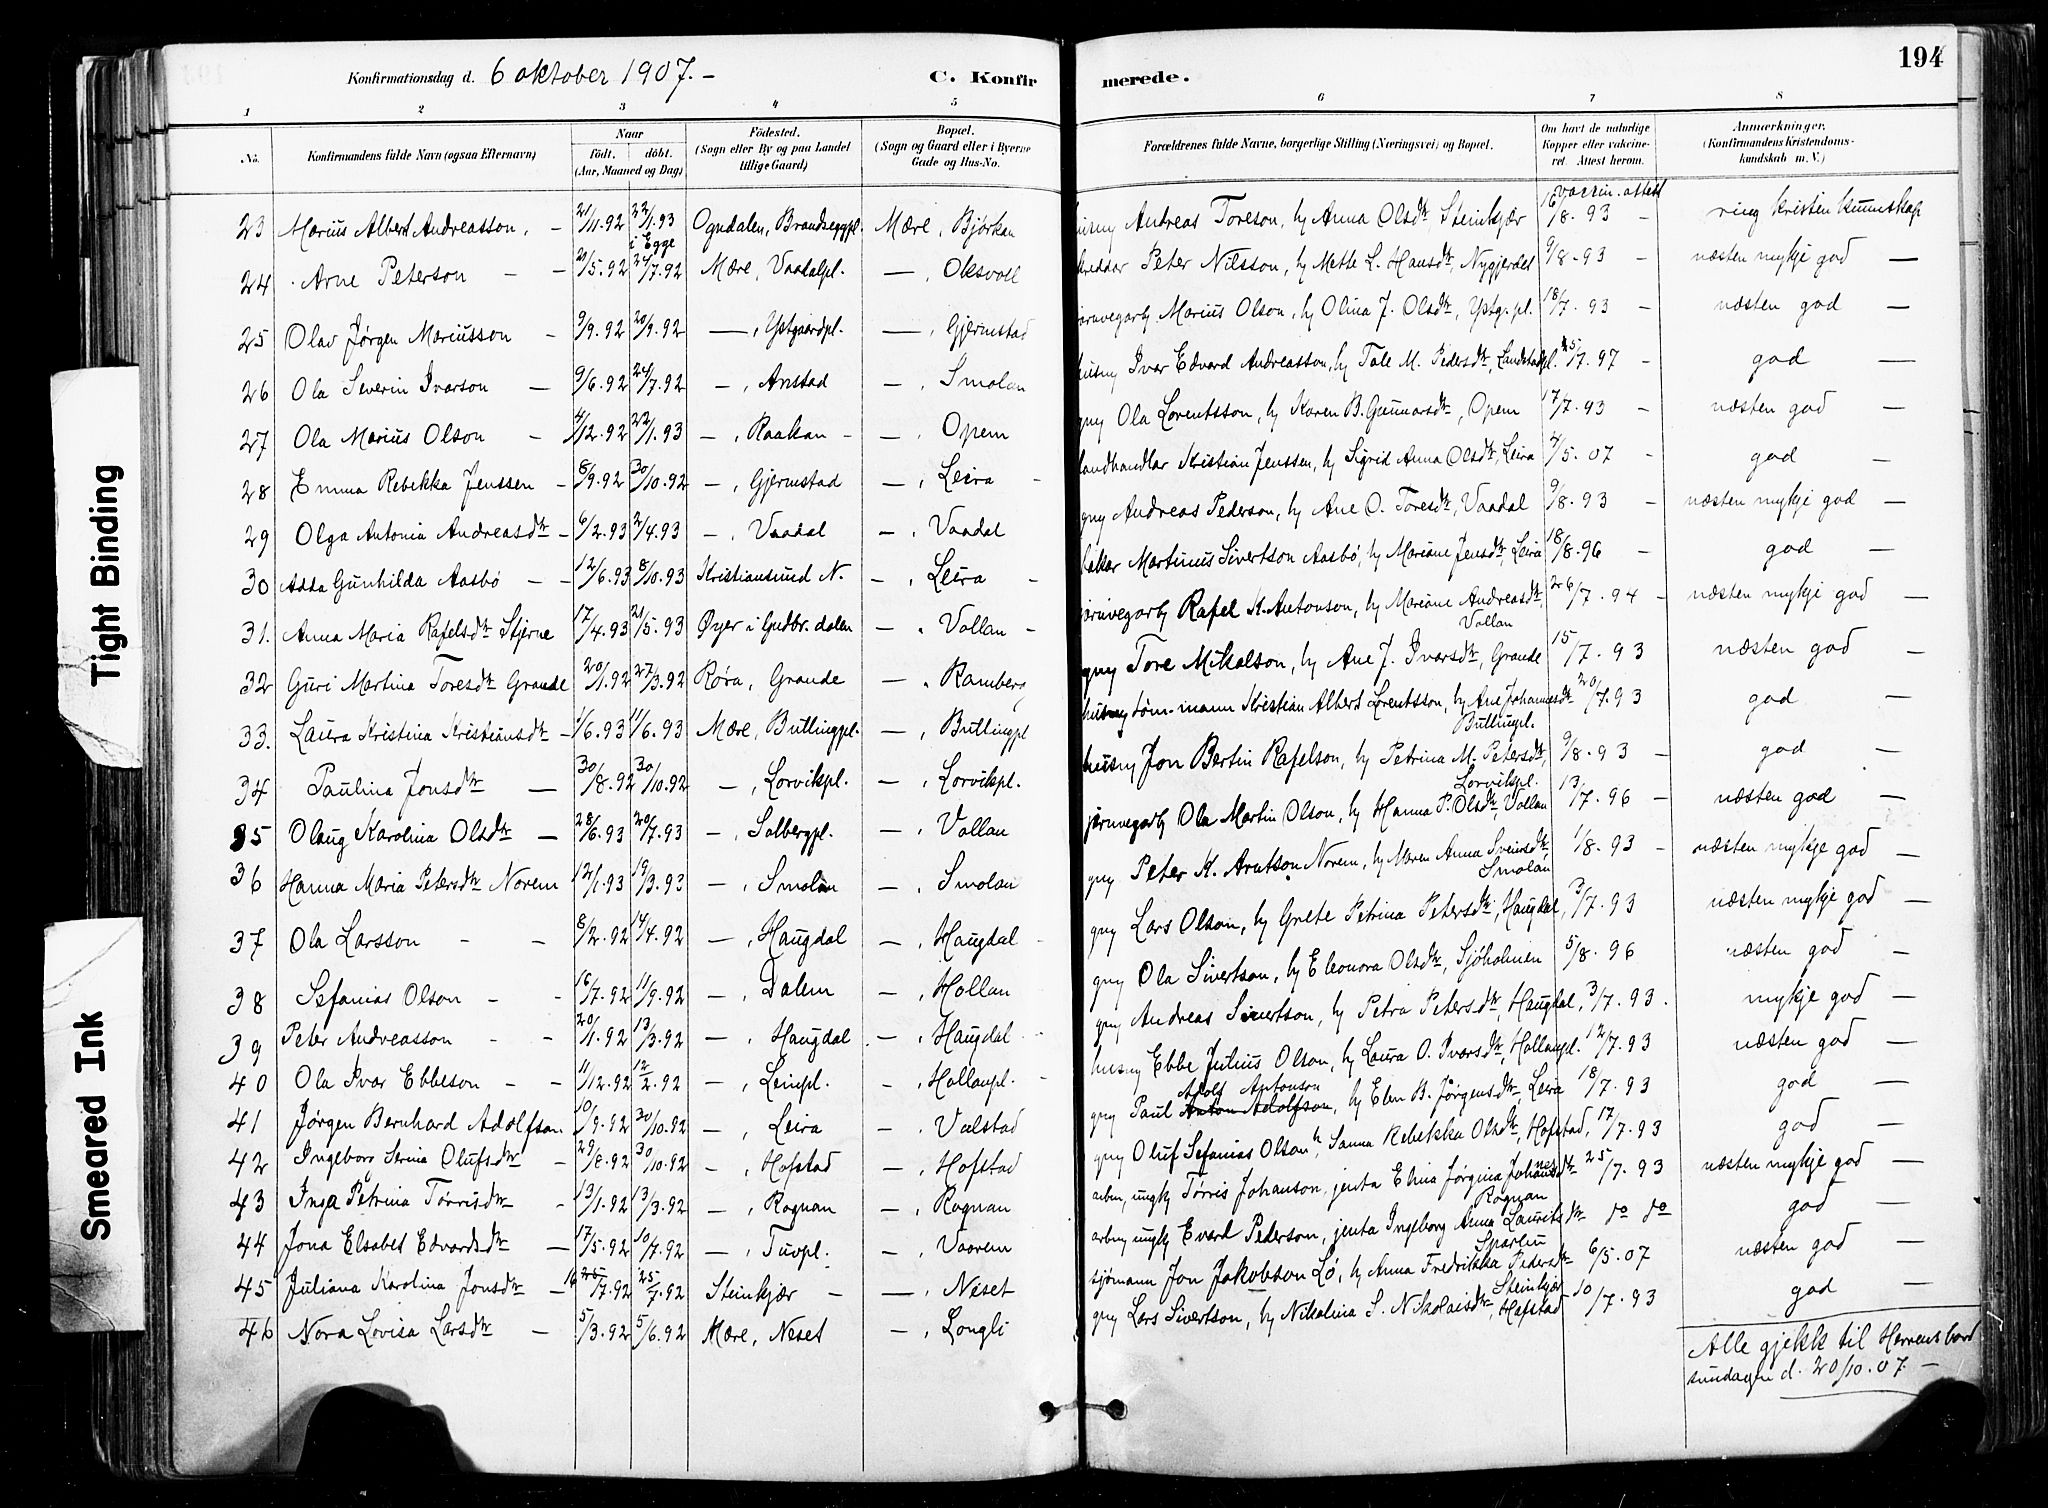 194
Konfirmationsdag d. 6 oktober 1907. –
C. Konfir merede.
1 2 3 4 5 6 7 8
No. Konfirmandens fulde Navn (ogsaa Efternavn) Naar födt. döbt. (Aar, Maaned og Dag) Födested. (Sogn eller By og paa Landet tillige Gaard) Bopæl. (Sogn og Gaard eller i Byerne Gade og Hus-No. Forældrenes fulde Navne, borgerlige Stilling (Næringsvei) og Bopæl. Om havt de naturlige Kopper eller vakcineret. Attest herom. Anmærkninger. (Konfirmandens Kristendomskundskab m. V.)
23 Marius Albert Andreasson, – 21/11.92 22/1.93 i Egge Ogndalen, Brandseggpl. Mære, Bjørkan husmy Andreas Toreson, hy Anna Olsdtr, Steinkjær vaccin. attest 16/8.93 – ring kristen kunnskap
24 Arne Peterson – – 20/5.92 24/7.92 Mære, Vaadalpl. —, Oksvoll skreddar Peter Nilsson, hy Mette L. Hansdtr, Nygjerdet 9/8.93 – næsten mykje god —
25 Olav Jørgen Mariusson – 9/9.92 20/9.92 —, Ystgaardpl. —, Gjermstad jarnvegarb. Marius Olson, hy Olina J. Olsdtr, Ystg.pl. 18/7.93 – næsten god —
26 Ola Severin Ivarson — 9/6.92 24/7.92 –, Anstad –, Smolan husmy Ivar Edvard Andreasson, hy Tale M. Pedersdtr, Landstadpl. 25/7.97 – god —
27 Ola Marius Olson – 4/12.92 22/1.93 –, Raakan – –, Opem gmy Ola Lorentsson, hy Karen B. Gunnarsdtr, Opem 17/7.93 – næsten god —
28 Emma Rebekka Jenssen – 8/9.92 30/10.92 –, Gjermstad –, Leira – landhandlar Kristian Jenssen, hy Sigrid Anna Olsdtr, Leira 4/5.07 – god —
29 Olga Antonia Andreasdtr – 6/2.93 2/4.93 –, Vaadal –, Vaadal gmy Andreas Pederson, hy Ane O. Toresdtr, Vaadal 9/8.93 – næsten mykje god —
30 Asta Gunhilda Aasbø – – 12/6.93 8/10.93 Kristiansund N. –, Leira – bakar Martinus Sivertson Aasbø, hy Mariane Jensdtr, Leira 18/8.96 – god —
31. Anna Maria Rafelsdtr Stjerne 17/4.93 21/5.93 Øyer i Gudbr.dalen –, Vollan – jarnvegarb Rafel K. Antonson, hy Mariane Andreasdtr, Vollan 26/7.94 – næsten mykje god —
32 Guri Martina Toresdtr Grande 20/1.92 27/3.92 Røra, Grande –, Ramberg gmy Tore Mikalson, hy Ane J. Ivarsdtr, Grande 15/7.93 næsten god —
33. Laura Kristina Kristiansdtr – 1/6.93 11/6.93 Mære, Butlingpl. –, Butlingpl husmy tøm.mann Kristian Albert Lorentsson, hy Ane Johannesdtr Butlingpl. 20/7.93 god —
34 Paulina Jonsdtr — 30/8.92 30/10.92 –, Lorvikpl. –, Lorvikpl. husmy Jon Bertin Rafelson, hy Petrina M. Petersdtr, Lorvikpl. 9/8.93 – god —
35 Olaug Karolina Olsdtr – 28/6.93 20/7.93 –, Salbergpl. –, Vollan jernvegarb Ola Martin Olson, hy Hanna P. Olsdtr, Vollan 13/7.96 – næsten god —
36 Hanna Maria Petersdtr Norem 12/1.93 19/3.93 –, Smolan –, Smolan gmy Peter K. Arntson Norem, hy Maren Anna Sveinsdtr Smolan 1/8.93 – næsten mykje god —
37 Ola Larsson – – 8/2.92 14/4.92 –, Haugdal –, Haugdal – gmy Lars Olson, hy Grete Petrina Petersdtr, Haugdal, 3/7.93 næsten mykje god —
38 Sefanias Olson – – 16/7.92 11/9.92 –, Dalem –, Hollan gmy Ola Sivertson, hy Eleonora Olsdtr, Sjøholmen 5/8.96 næsten god —
39 Peter Andreasson – – 20/1.92 13/3.92 –, Haugdal –, Haugdal gmy Andreas Sivertson, hy Petra Petersdtr, Haugdal, 3/7.93. mykje god —
40 Ola Ivar Ebbeson – – 11/12.92 12/2.92 –, Leinpl. –, Hollanpl. husmy Ebbe Julius Olson, hy Laura O. Ivarsdtr, Hollanpl. 12/7.93 næsten god —
41 Jørgen Bernhard Adolfson 10/9.92 30/10.92 –, Leira –, Valstad gmy Paul Anton Adolfson, Adolf Antonson hy Elen B. Jørgensdtr, Leira 18/7.93 god —
42 Ingeborg Serina Olufsdtr – 29/8.92 30/10.92 –, Hofstad –, Hofstad gmy Oluf Sefanias Olson, h Sanna Rebekka Olsdtr, Hofstad, 17/7.93 god —
43 Inga Petrina Tørrisdtr – 13/1.92 13/3.92 –, Rognan –, Rognan arbm, ungk Tørris Johanson, jenta Elina Jørgina Johannesdtr Rognan 25/7.93 næsten mykje god —
44 Jona Elsabet Edvardsdtr – 17/5.92 10/7.92 –, Tuvpl. –, Vaarem arbm ungk Evard Pederson, jenta Ingeborg Anna Lauritsdtr Sparbu do do god —
45 Juliana Karolina Jonsdtr – 16/7.92 25/7.92 Steinkjær – —, Neset sjømann Jon Jakobson Lø, hy Anna Fredrikka Pedersdtr Steinkjær 6/5.07 næsten god —
46 Nora Lovisa Larsdtr – 5/3.92 5/6.92 Mære, Neset –, Longli gmy Lars Sivertson, hy Nikolina S. Nikolaisdtr, Hofstad 10/7.93 god —
Alle gjekk til Herrens bord
sundagen d. 20/10.07. —
Tight Binding
Smeared Ink